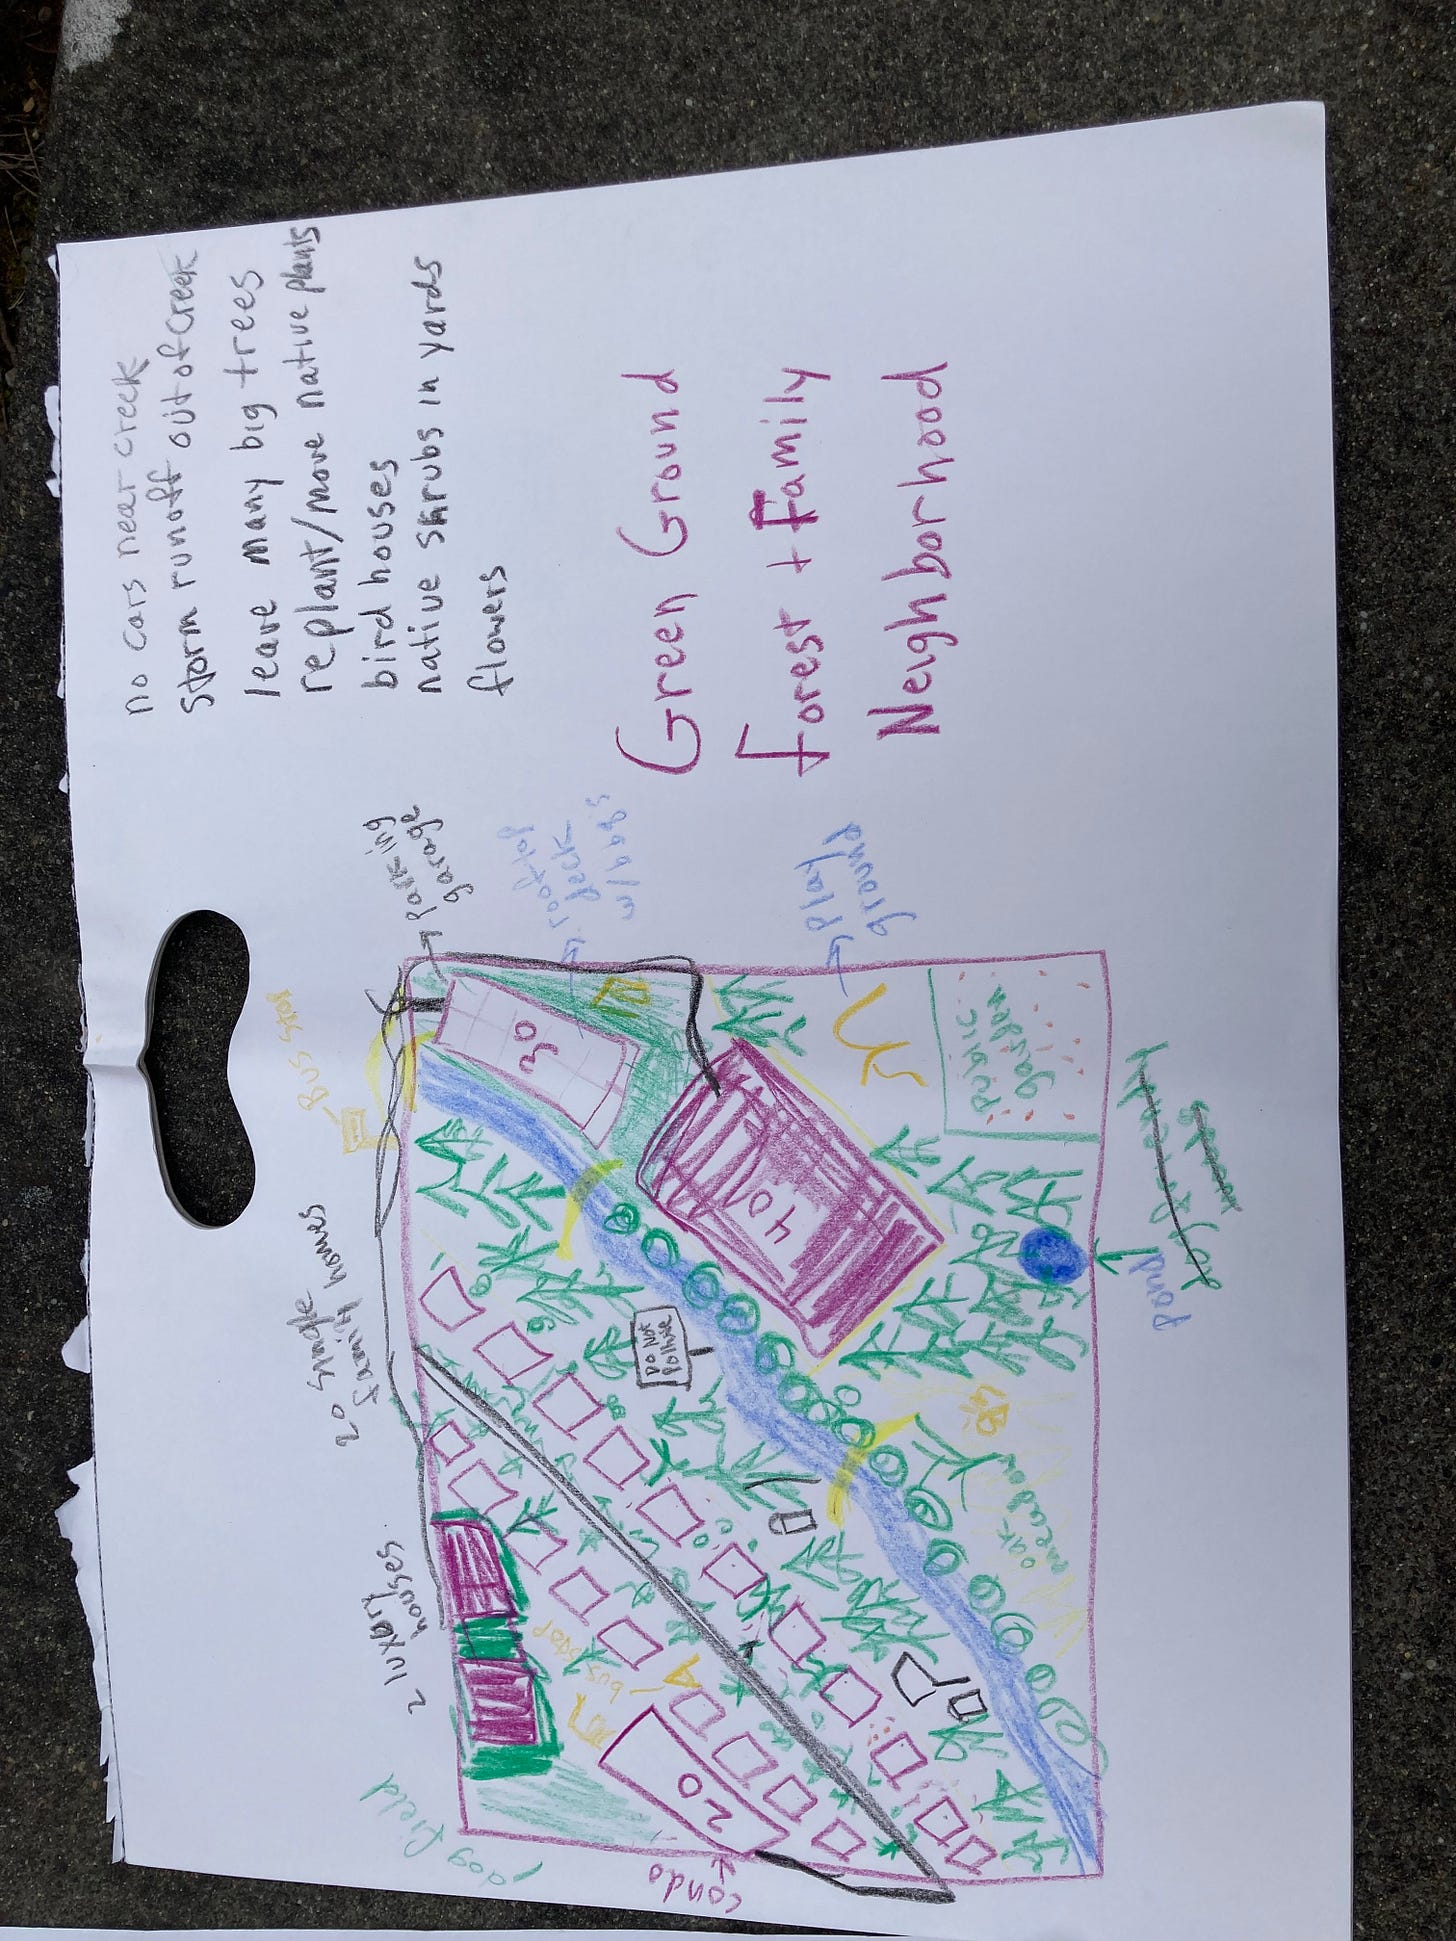 no cars near creek
storm runoff out of creek
leave many big trees
replant/move native plants
bird houses
native shrubs in yards
flowers
Green Ground
Forest + Family
Neighborhood
parking
garage
rooftop
deck
w/ bbq's
play
ground
Bus stop
20 single
family homes
2 luxury
houses
dog field
condo
30
40
20
bus stop
Do Not
Pollute
public
garden
oak
meadow
pond